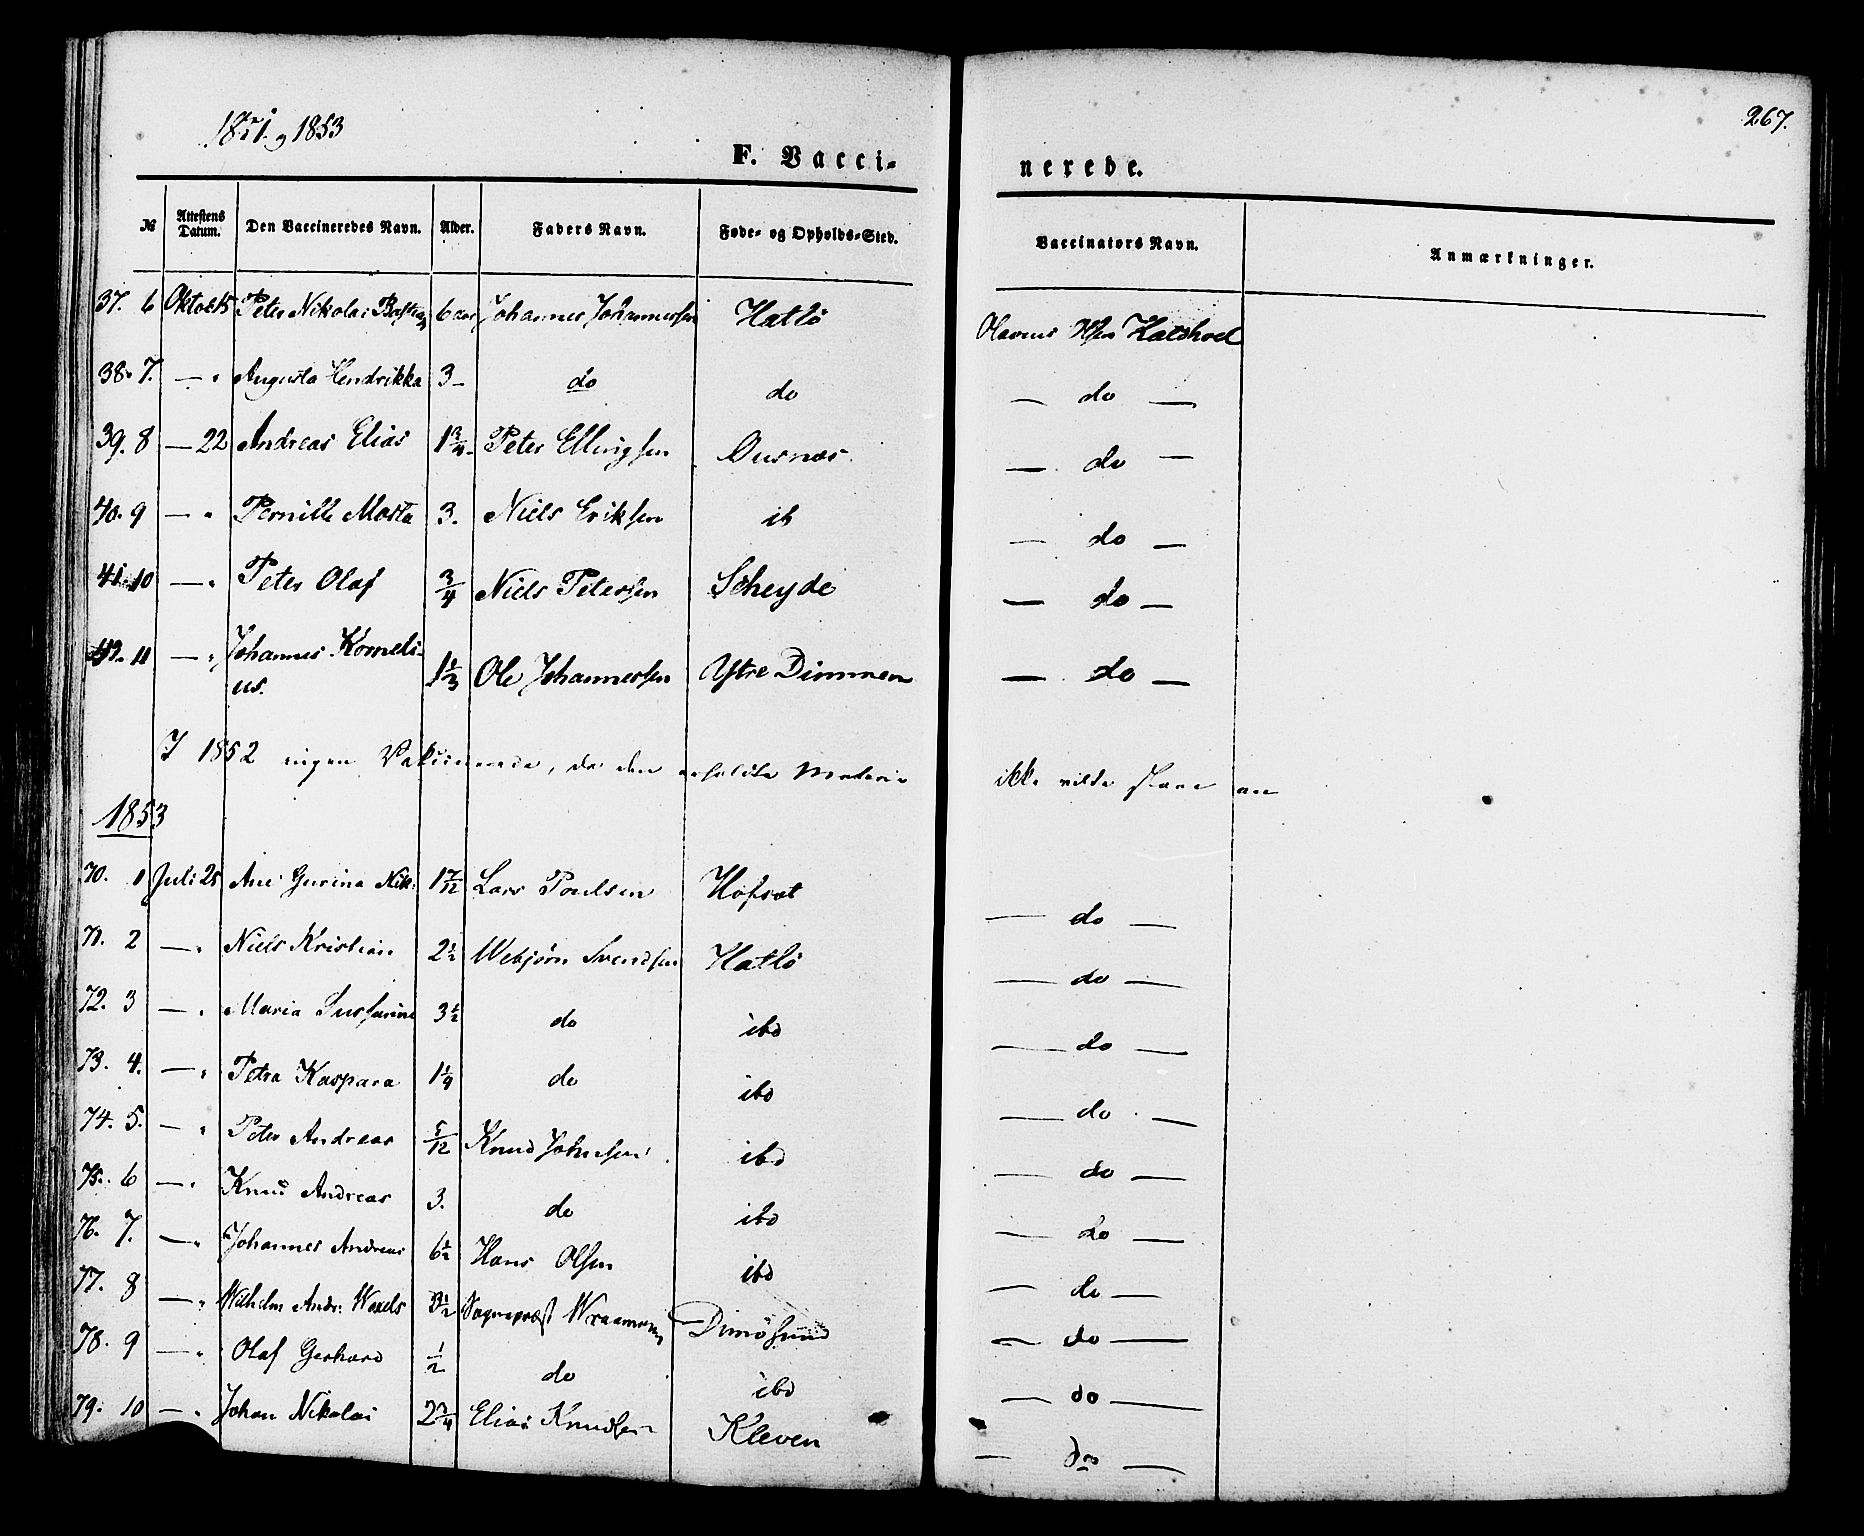 1851 og 1853
267.
F. Vacci-
nerede.
№ Attestens Datum. Den Vaccineredes Navn. Alder. Faders Navn. Føde- og Opholds-Sted. Vaccinators Navn. Anmærkninger.
37. 6 Oktob 15 Peter Nikolai Bastian 6 aar Johannes Johannessen Hatlö Olavus Hatshoel
38. 7. — " Augusta Hendrikka 3 – do do — do —
39. 8 — 22 Andreas Elias 1 3/4 Peter Ellingsen Ousnæs. — do —
40. 9 — " Pernille Marta 3. Niels Eriksen ib — do —
41. 10 — " Peter Olaf 3/4 Niels Petersen Scheyde — do —
42. 11 — " Johannes Korneli-
us. 1 2/3 Ole Johannessen Ystre Dimmen — do —
I 1852 ingen Vakcinerede, da den erholdte Materie ikke vilde slaae an
1853
70. 1 Juli 25 Ane Gurina Nik: 1 7/12 Lars Poulsen Hofset — do —
71. 2 — " Niels Kristian 2 1/2 Webjørn Svendsen Hatlö — do —
72. 3 — " Maria 3 1/2 do ibd — do —
73. 4. — " Petra Kaspara 1 1/4 do ibd — do —
74. 5. — " Peter Andreas 5/12 Knud Johnsen ibd — do —
75. 6 — " Knud Andreas 3. do ibd — do —
76. 7. — " Johannes Andreas 6 1/2 Hans Olsen ibd — do —
77. 8 — " Wilhelm Andr: Wexels 3 1/2 Sognepræst Wraamann Dimösund — do —
78. 9 — " Olaf Gerhard 1/2 do ibd — do —
79. 10 — " Johan Nikolai 2 3/4 Elias Knudsen Kleven — do —